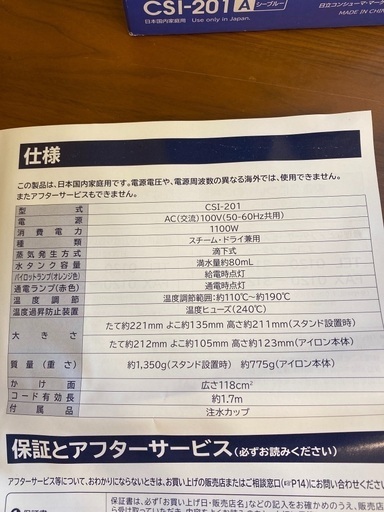 CSI-201 A シーブルー
日本国内家庭用 Use only in Japan.
日立コンシューマ・マー
MADE IN CHIN
仕様
この製品は、日本国内家庭用です。電源電圧や、電源周波数の異なる海外では、使用できません。
またアフターサービスもできません。
型式 CSI-201
電源 AC(交流)100V(50-60Hz共用)
消費電力 1100W
種類 スチーム・ドライ兼用
蒸気発生方式 滴下式
水タンク容量 満水量約80mL
パイロットランプ(オレンジ色) 給電時点灯
通電ランプ(赤色) 通電時点灯
温度調節 温度調節範囲:約110℃～約190℃
温度過昇防止装置 温度ヒューズ(240℃)
大きさ たて約221mm よこ約135mm 高さ約211mm(スタンド設置時)
たて約212mm よこ約105mm 高さ約123mm(アイロン本体)
質量(重さ) 約1,350g(スタンド設置時) 約775g(アイロン本体)
かけ面 広さ118cm²
コード有効長 約1.7m
付属品 注水カップ
保証とアフターサービス(必ずお読みください)
アフターサービス等について、おわかりにならないときは、お買い上げの販売店またはご相談窓口(P14)にお問い合わせくださ
保証書は、必ず「お買い上げ日・販売店名」などの記入をお確かめのうえ、
ら受け取っていただき